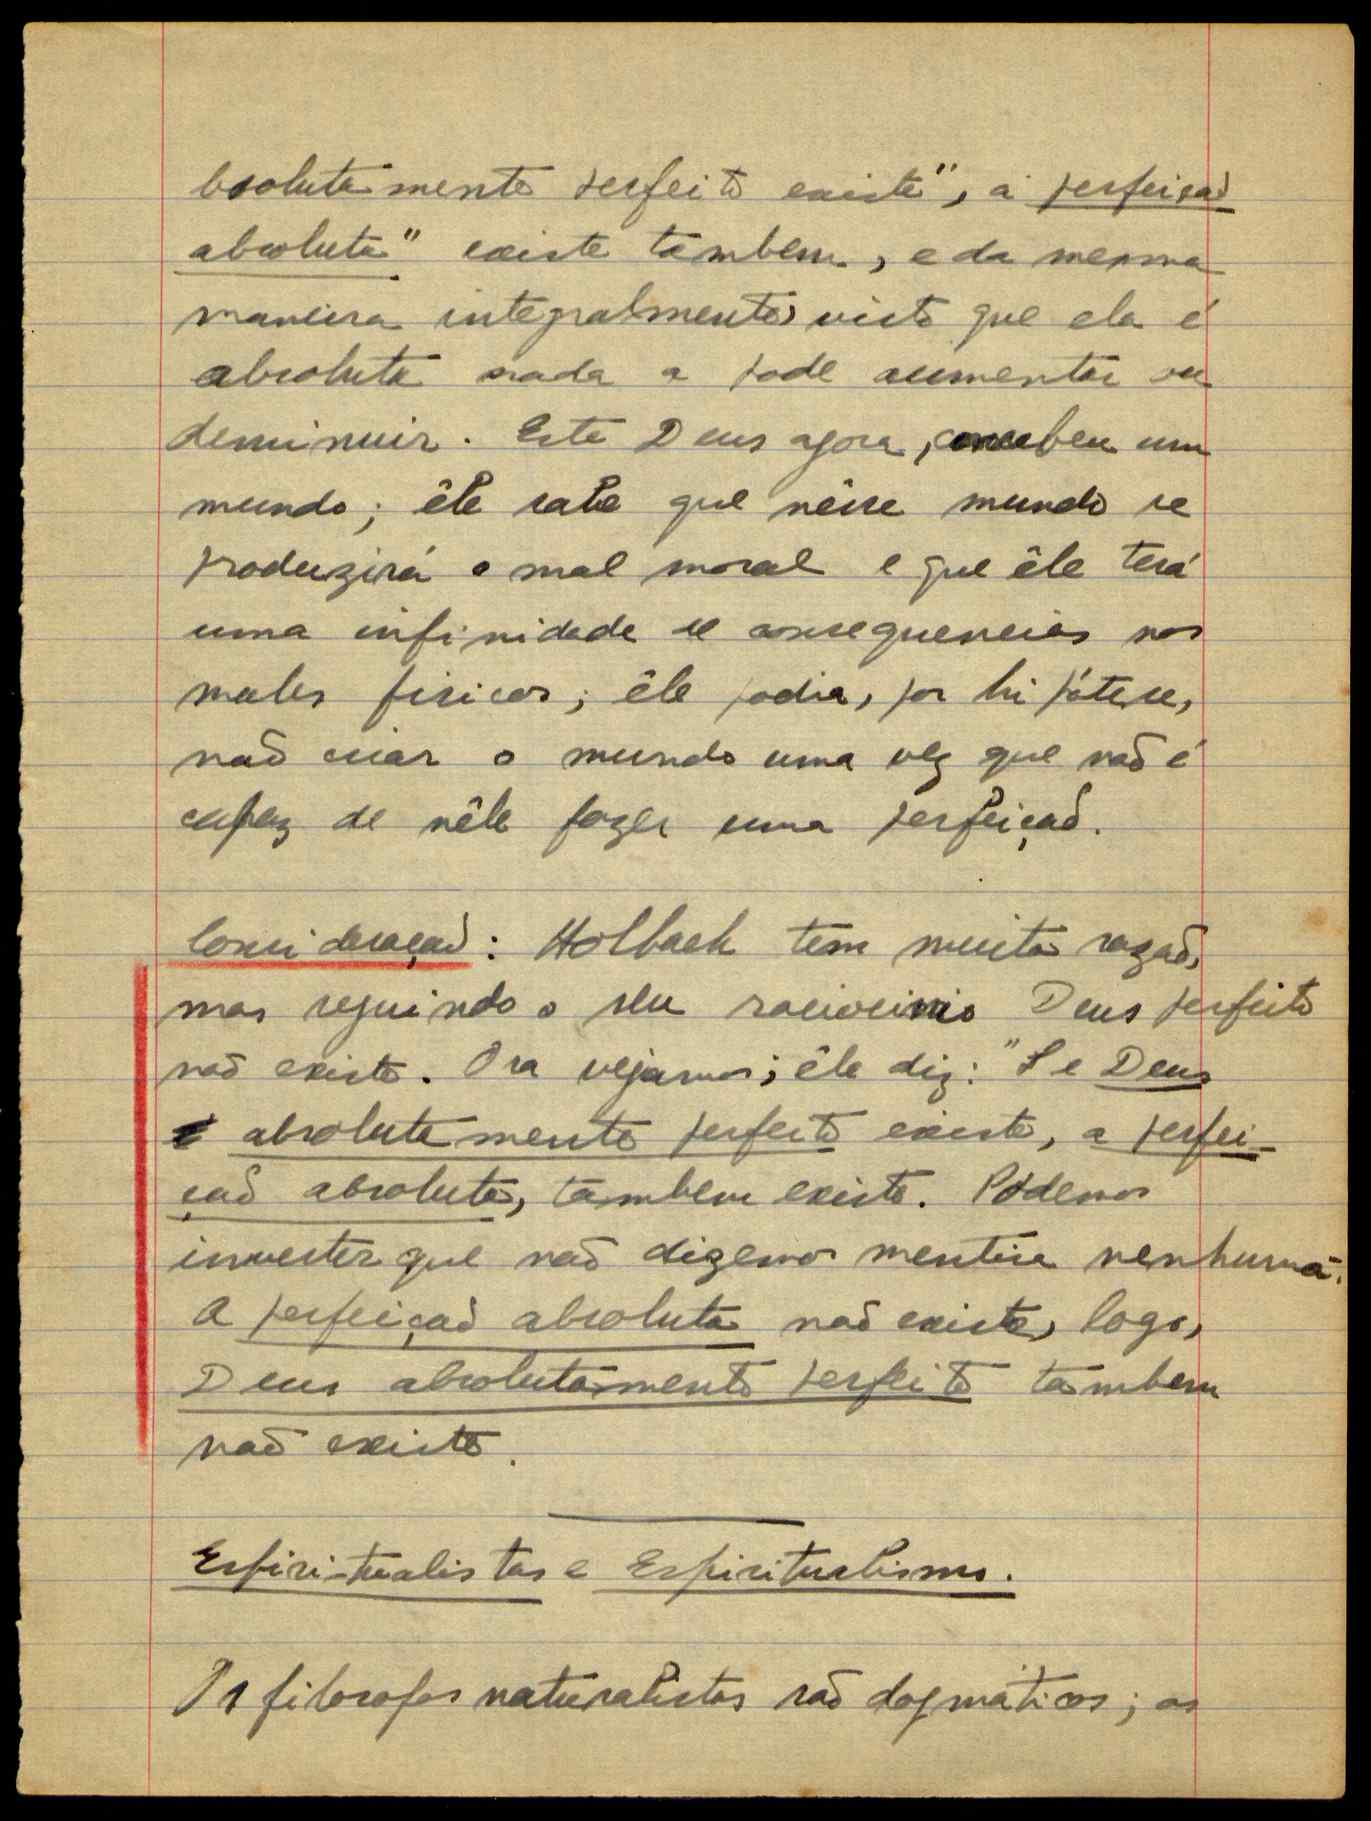 bsolutamente perfeito existe", a perfeição
absoluta" existe tambem, e da mesma
maneira integralmente, visto que ela é
absoluta nada a pode aumentar ou
deminuir. Este Deus agora, concebeu um
mundo; êle sabe que nêsse mundo se
produzirá o mal moral e que êle terá
uma infinidade se consequencias nos
males fisicos; êle podia, por hipótese,
não criar o mundo uma vez que não é
capaz de nêle fazer uma perfeição.
Consideração: Holback tem muita razão,
mas seguindo o seu raciocinio Deus perfeito
não existe. Ora vejamos; êle diz: "Se Deus
absolutamente perfeito existe, a perfei-
ção absoluta, tambem existe. Pódemos
inverter que não dizemos mentira nenhuma.
A perfeição absoluta não existe, logo,
Deus absolutamente perfeito tambem
não existe.
Espiritualistas e Espiritualismo.
Os filosofos naturalistas são dogmáticos; os